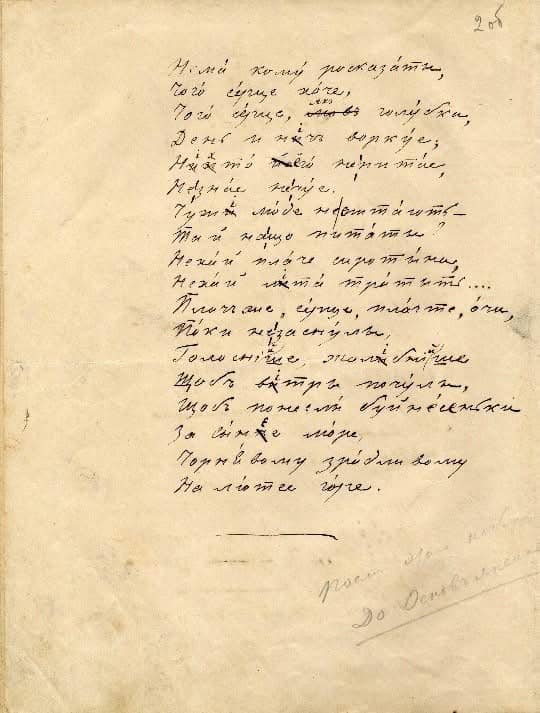 2 об
Нема́ кому́ росказа́ти,
Чого́ се́рце хо́че,
Чого́ се́рце, мовъ голу́бка,
День и ни́чъ воркуе;
Нихто́ його́ непита́е,
Незна́е нечу́е.
Чужи́ лю́де неспита́ють —
Та й на́що пита́ти?
Неха́й пла́че сироти́на,
Неха́й лита́ тра́тить....
Пла́чъже, се́рце, пла́чте, о́чи,
По́ки незасну́лы,
Голосни́ше, жалибни́ше
Щобъ витры́ почу́лы,
Щобъ понесли́ буйне́сеньки
За си́нее мо́ре,
Чорня́вому зра́дливому
На лю́тее го́ре.
До Основъяненка